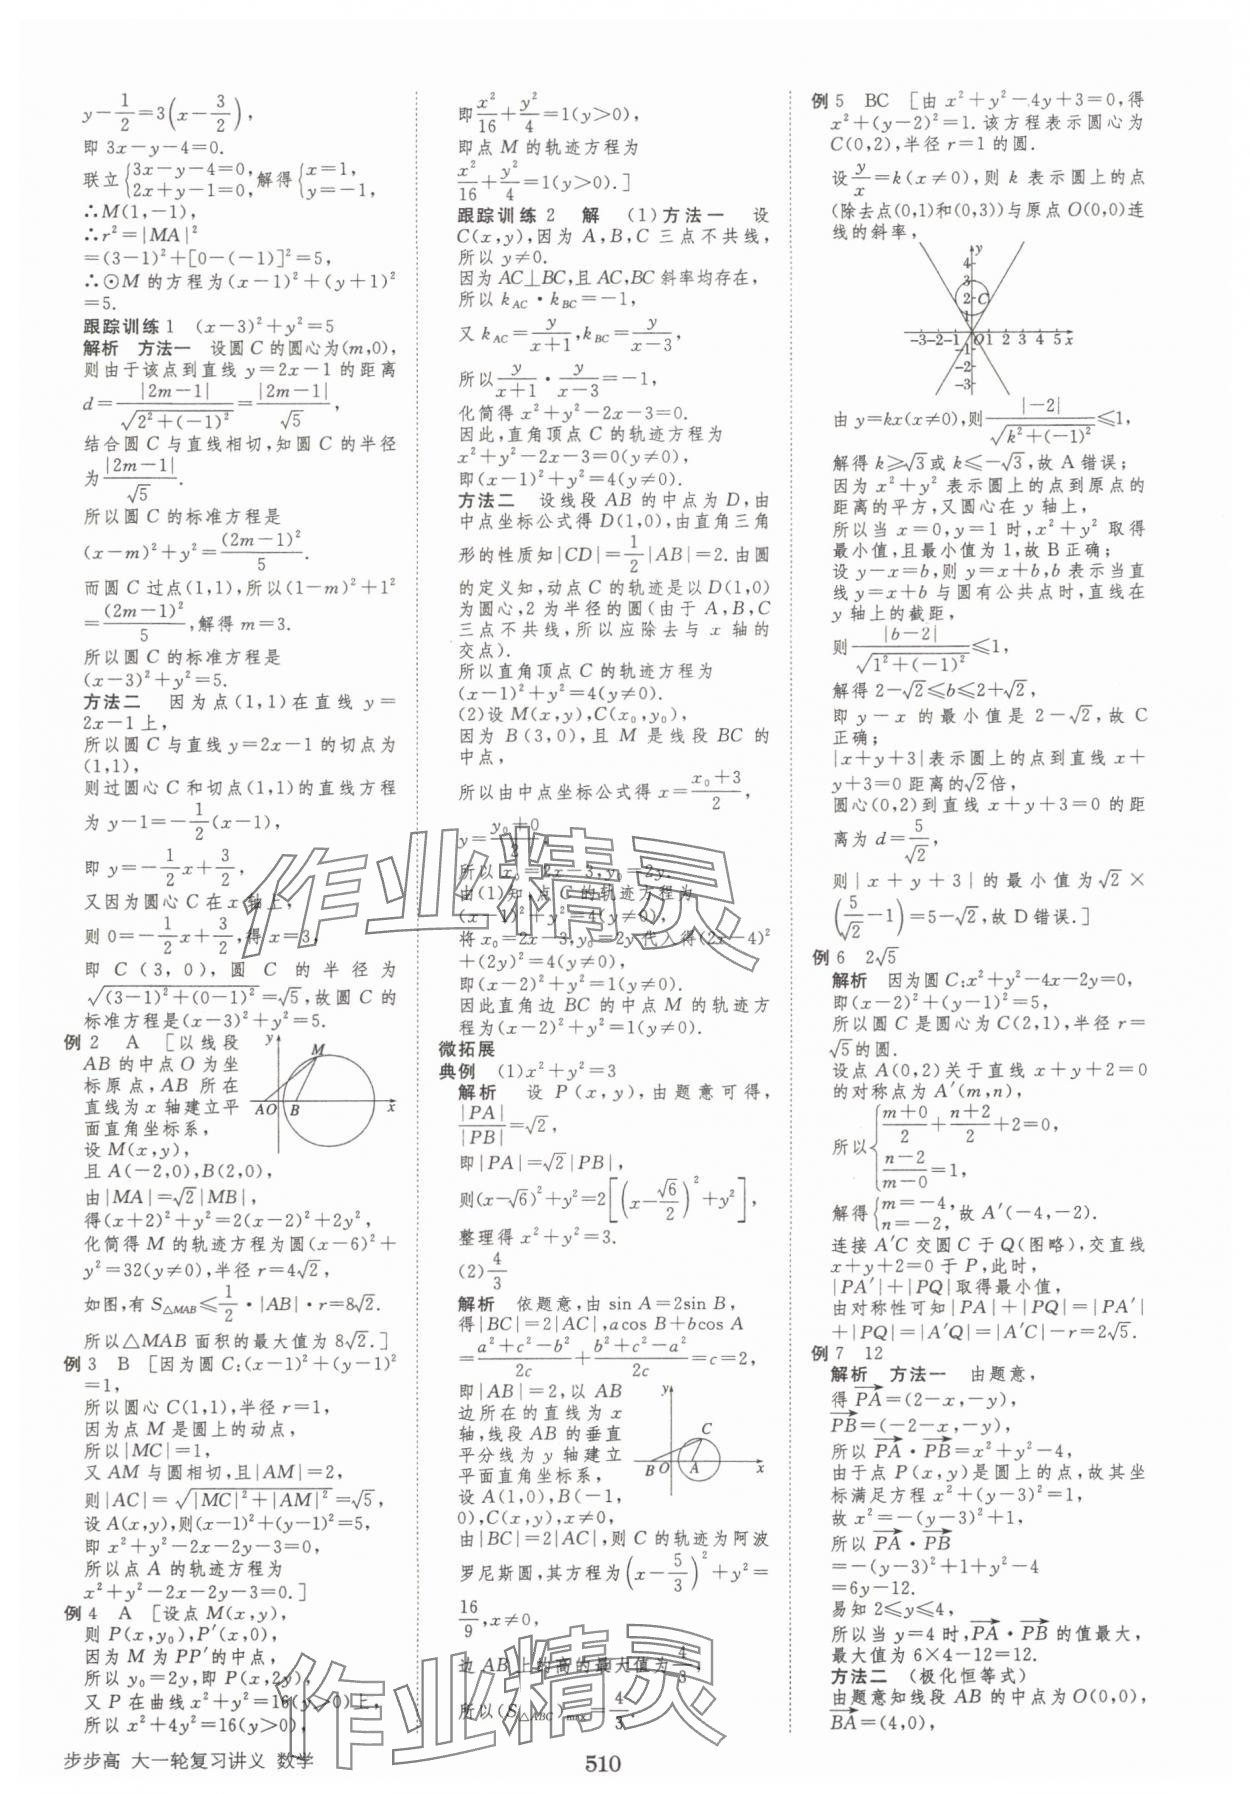 y-1/2=3(x-3/2),
即 3x-y-4=0.
联立{3x-y-4=0, 2x+y-1=0,解得{x=1, y=-1,
∴M(1,-1),
∴r²=|MA|²
=(3-1)²+[0-(-1)]²=5,
∴⊙M 的方程为(x-1)²+(y+1)²
=5.
跟踪训练1 (x-3)²+y²=5
解析 方法一 设圆 C 的圆心为(m,0),
则由于该点到直线 y=2x-1 的距离
d=|2m-1|/√(2²+(-1)²)=|2m-1|/√5,
结合圆 C 与直线相切,知圆 C 的半径
为|2m-1|/√5.
所以圆 C 的标准方程是
(x-m)²+y²=(2m-1)²/5.
而圆 C 过点(1,1),所以(1-m)²+1²
=(2m-1)²/5,解得 m=3.
所以圆 C 的标准方程是
(x-3)²+y²=5.
方法二 因为点(1,1)在直线 y=
2x-1 上,
所以圆 C 与直线 y=2x-1 的切点为
(1,1),
则过圆心 C 和切点(1,1)的直线方程
为 y-1=-1/2(x-1),
即 y=-1/2x+3/2,
又因为圆心 C 在 x 轴上,
则 0=-1/2x+3/2,得 x=3,
即 C(3,0),圆 C 的半径为
√((3-1)²+(0-1)²)=√5,故圆 C 的
标准方程是(x-3)²+y²=5.
例 2 A [以线段
AB 的中点 O 为坐
标原点,AB 所在
直线为 x 轴建立平
面直角坐标系,
y
M
A O B x
设 M(x,y),
且 A(-2,0),B(2,0),
由|MA|=√2|MB|,
得(x+2)²+y²=2(x-2)²+2y²,
化简得 M 的轨迹方程为圆(x-6)²+
y²=32(y≠0),半径 r=4√2,
如图,有 S△MAB≤1/2·|AB|·r=8√2.
所以△MAB 面积的最大值为 8√2.]
例 3 B [因为圆 C:(x-1)²+(y-1)²
=1,
所以圆心 C(1,1),半径 r=1,
因为点 M 是圆上的动点,
所以|MC|=1,
又 AM 与圆相切,且|AM|=2,
则|AC|=√(|MC|²+|AM|²)=√5,
设 A(x,y),则(x-1)²+(y-1)²=5,
即 x²+y²-2x-2y-3=0,
所以点 A 的轨迹方程为
x²+y²-2x-2y-3=0.]
例 4 A [设点 M(x,y),
则 P(x,y₀),P′(x,0),
因为 M 为 PP′的中点,
所以 y₀=2y,即 P(x,2y),
又 P 在曲线 x²+y²=16(y>0)上,
所以 x²+4y²=16(y>0),
即x²/16+y²/4=1(y>0),
即点 M 的轨迹方程为
x²/16+y²/4=1(y>0).]
跟踪训练 2 解 (1)方法一 设
C(x,y),因为 A,B,C 三点不共线,
所以 y≠0.
因为 AC⊥BC,且 AC,BC 斜率均存在,
所以 k_AC·k_BC=-1,
又 k_AC=y/(x+1),k_BC=y/(x-3),
所以y/(x+1)·y/(x-3)=-1,
化简得 x²+y²-2x-3=0.
因此,直角顶点 C 的轨迹方程为
x²+y²-2x-3=0(y≠0),
即(x-1)²+y²=4(y≠0).
方法二 设线段 AB 的中点为 D,由
中点坐标公式得 D(1,0),由直角三角
形的性质知|CD|=1/2|AB|=2.由圆
的定义知,动点 C 的轨迹是以 D(1,0)
为圆心,2 为半径的圆(由于 A,B,C
三点不共线,所以应除去与 x 轴的
交点).
所以直角顶点 C 的轨迹方程为
(x-1)²+y²=4(y≠0).
(2)设 M(x,y),C(x₀,y₀),
因为 B(3,0),且 M 是线段 BC 的
中点,
所以由中点坐标公式得 x=(x₀+3)/2,
y=(y₀+0)/2,
所以 x₀=2x-3,y₀=2y.
由(1)知,点 C 的轨迹方程为
(x-1)²+y²=4(y≠0),
将 x₀=2x-3,y₀=2y 代入得(2x-4)²
+(2y)²=4(y≠0),
即(x-2)²+y²=1(y≠0).
因此直角边 BC 的中点 M 的轨迹方
程为(x-2)²+y²=1(y≠0).
微拓展
典例 (1)x²+y²=3
解析 设 P(x,y),由题意可得,
|PA|/|PB|=√2,
即|PA|=√2|PB|,
则(x-√6)²+y²=2[(x-√6/2)²+y²],
整理得 x²+y²=3.
(2)4/3
解析 依题意,由 sin A=2sin B,
得|BC|=2|AC|,acos B+bcos A
=(a²+c²-b²)/2c+(b²+c²-a²)/2c=c=2,
即|AB|=2,以 AB
边所在的直线为 x
轴,线段 AB 的垂直
平分线为 y 轴建立
平面直角坐标系,
y
C
B O A x
设 A(1,0),B(-1,
0),C(x,y),x≠0,
由|BC|=2|AC|,则 C 的轨迹为阿波
罗尼斯圆,其方程为(x-5/3)²+y²=
16/9,x≠0,
边 AB 上的高的最大值为4/3,
所以(S△ABC)max=4/3.
例 5 BC [由 x²+y²-4y+3=0,得
x²+(y-2)²=1.该方程表示圆心为
C(0,2),半径 r=1 的圆.
设y/x=k(x≠0),则 k 表示圆上的点
(除去点(0,1)和(0,3))与原点 O(0,0)连
线的斜率,
y
4
3
2 C
-3-2-1 O1 2 3 4 5 x
-1
-2
-3
由 y=kx(x≠0),则|-2|/√(k²+(-1)²)≤1,
解得 k≥√3或 k≤-√3,故 A 错误;
因为 x²+y² 表示圆上的点到原点的
距离的平方,又圆心在 y 轴上,
所以当 x=0,y=1 时,x²+y² 取得
最小值,且最小值为 1,故 B 正确;
设 y-x=b,则 y=x+b,b 表示当直
线 y=x+b 与圆有公共点时,直线在
y 轴上的截距,
则|b-2|/√(1²+(-1)²)≤1,
解得 2-√2≤b≤2+√2,
即 y-x 的最小值是 2-√2,故 C
正确;
|x+y+3|表示圆上的点到直线 x+
y+3=0 距离的√2倍,
圆心(0,2)到直线 x+y+3=0 的距
离为 d=5/√2,
则|x+y+3|的最小值为√2×
(5/√2-1)=5-√2,故 D 错误.]
例 6 2√5
解析 因为圆 C:x²+y²-4x-2y=0,
即(x-2)²+(y-1)²=5,
所以圆 C 是圆心为 C(2,1),半径 r=
√5的圆.
设点 A(0,2)关于直线 x+y+2=0
的对称点为 A′(m,n),
所以{(m+0)/2+(n+2)/2+2=0, (n-2)/(m-0)=1,
解得{m=-4, n=-2,故 A′(-4,-2).
连接 A′C 交圆 C 于 Q(图略),交直线
x+y+2=0 于 P,此时,
|PA′|+|PQ|取得最小值,
由对称性可知|PA|+|PQ|=|PA′|
+|PQ|=|A′Q|=|A′C|-r=2√5.
例 7 12
解析 方法一 由题意,
得PA→=(2-x,-y),
PB→=(-2-x,-y),
所以PA→·PB→=x²+y²-4,
由于点 P(x,y)是圆上的点,故其坐
标满足方程 x²+(y-3)²=1,
故 x²=-(y-3)²+1,
所以PA→·PB→
=-(y-3)²+1+y²-4
=6y-12.
易知 2≤y≤4,
所以当 y=4 时,PA→·PB→的值最大,
最大值为 6×4-12=12.
方法二 (极化恒等式)
由题意知线段 AB 的中点为 O(0,0),
BA→=(4,0),
步步高 大一轮复习讲义 数学
510
作业精灵
作业精灵